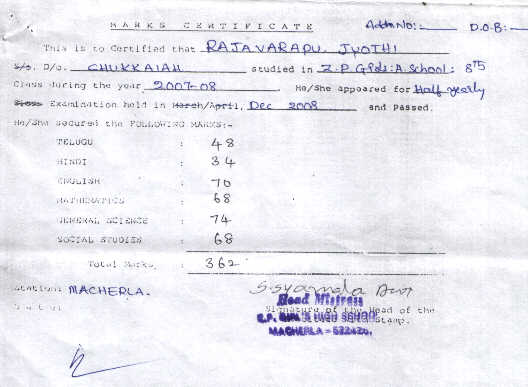 MARKS CERTIFICATE Admn No: D.O.B:
This is to Certified that RAJAVARAPU. JYOTHI
S/o. D/o. CHUKKAIAH studied in Z.P.Girls: A. School: 8th
Class during the year 2007-08 He/She appeared for Half yearly
Examination held in March/April, Dec 2008 and Passed.
He/She secured the FOLLOWING MARKS:-
TELUGU : 48
HINDI : 34
ENGLISH : 70
MATHEMATICS : 68
GENERAL SCIENCE : 74
SOCIAL STUDIES : 68
Total Marks, : 362
Station: MACHERLA.
Head Mistress
Signature of the Head of the
HIGH SCHOOL Stamp.
MACHERLA